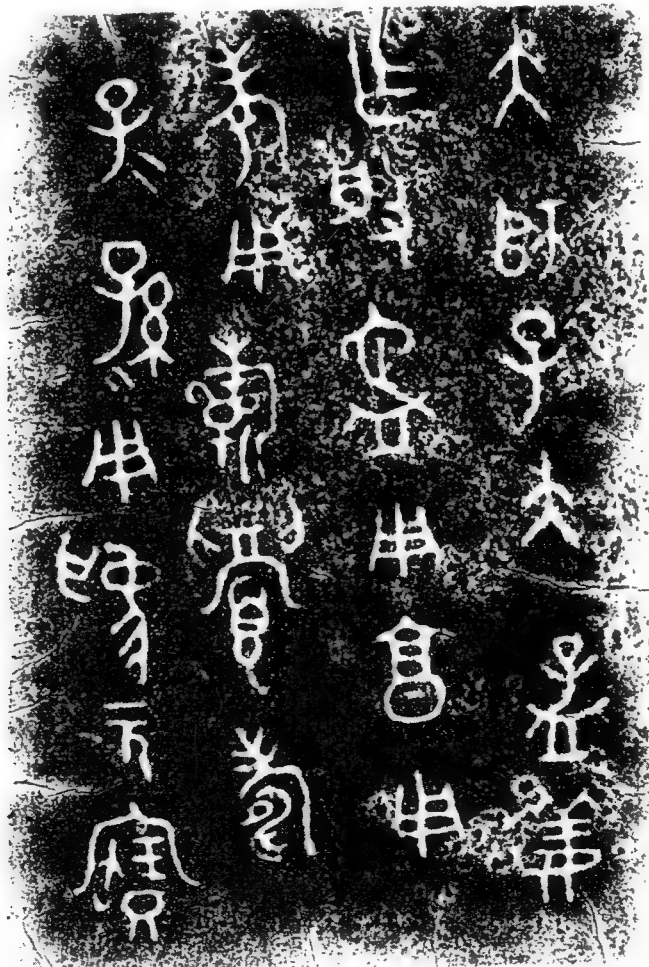 大師子大孟姜
乍般匜用享用
孝用祈眉壽
子=孫=用爲元寶